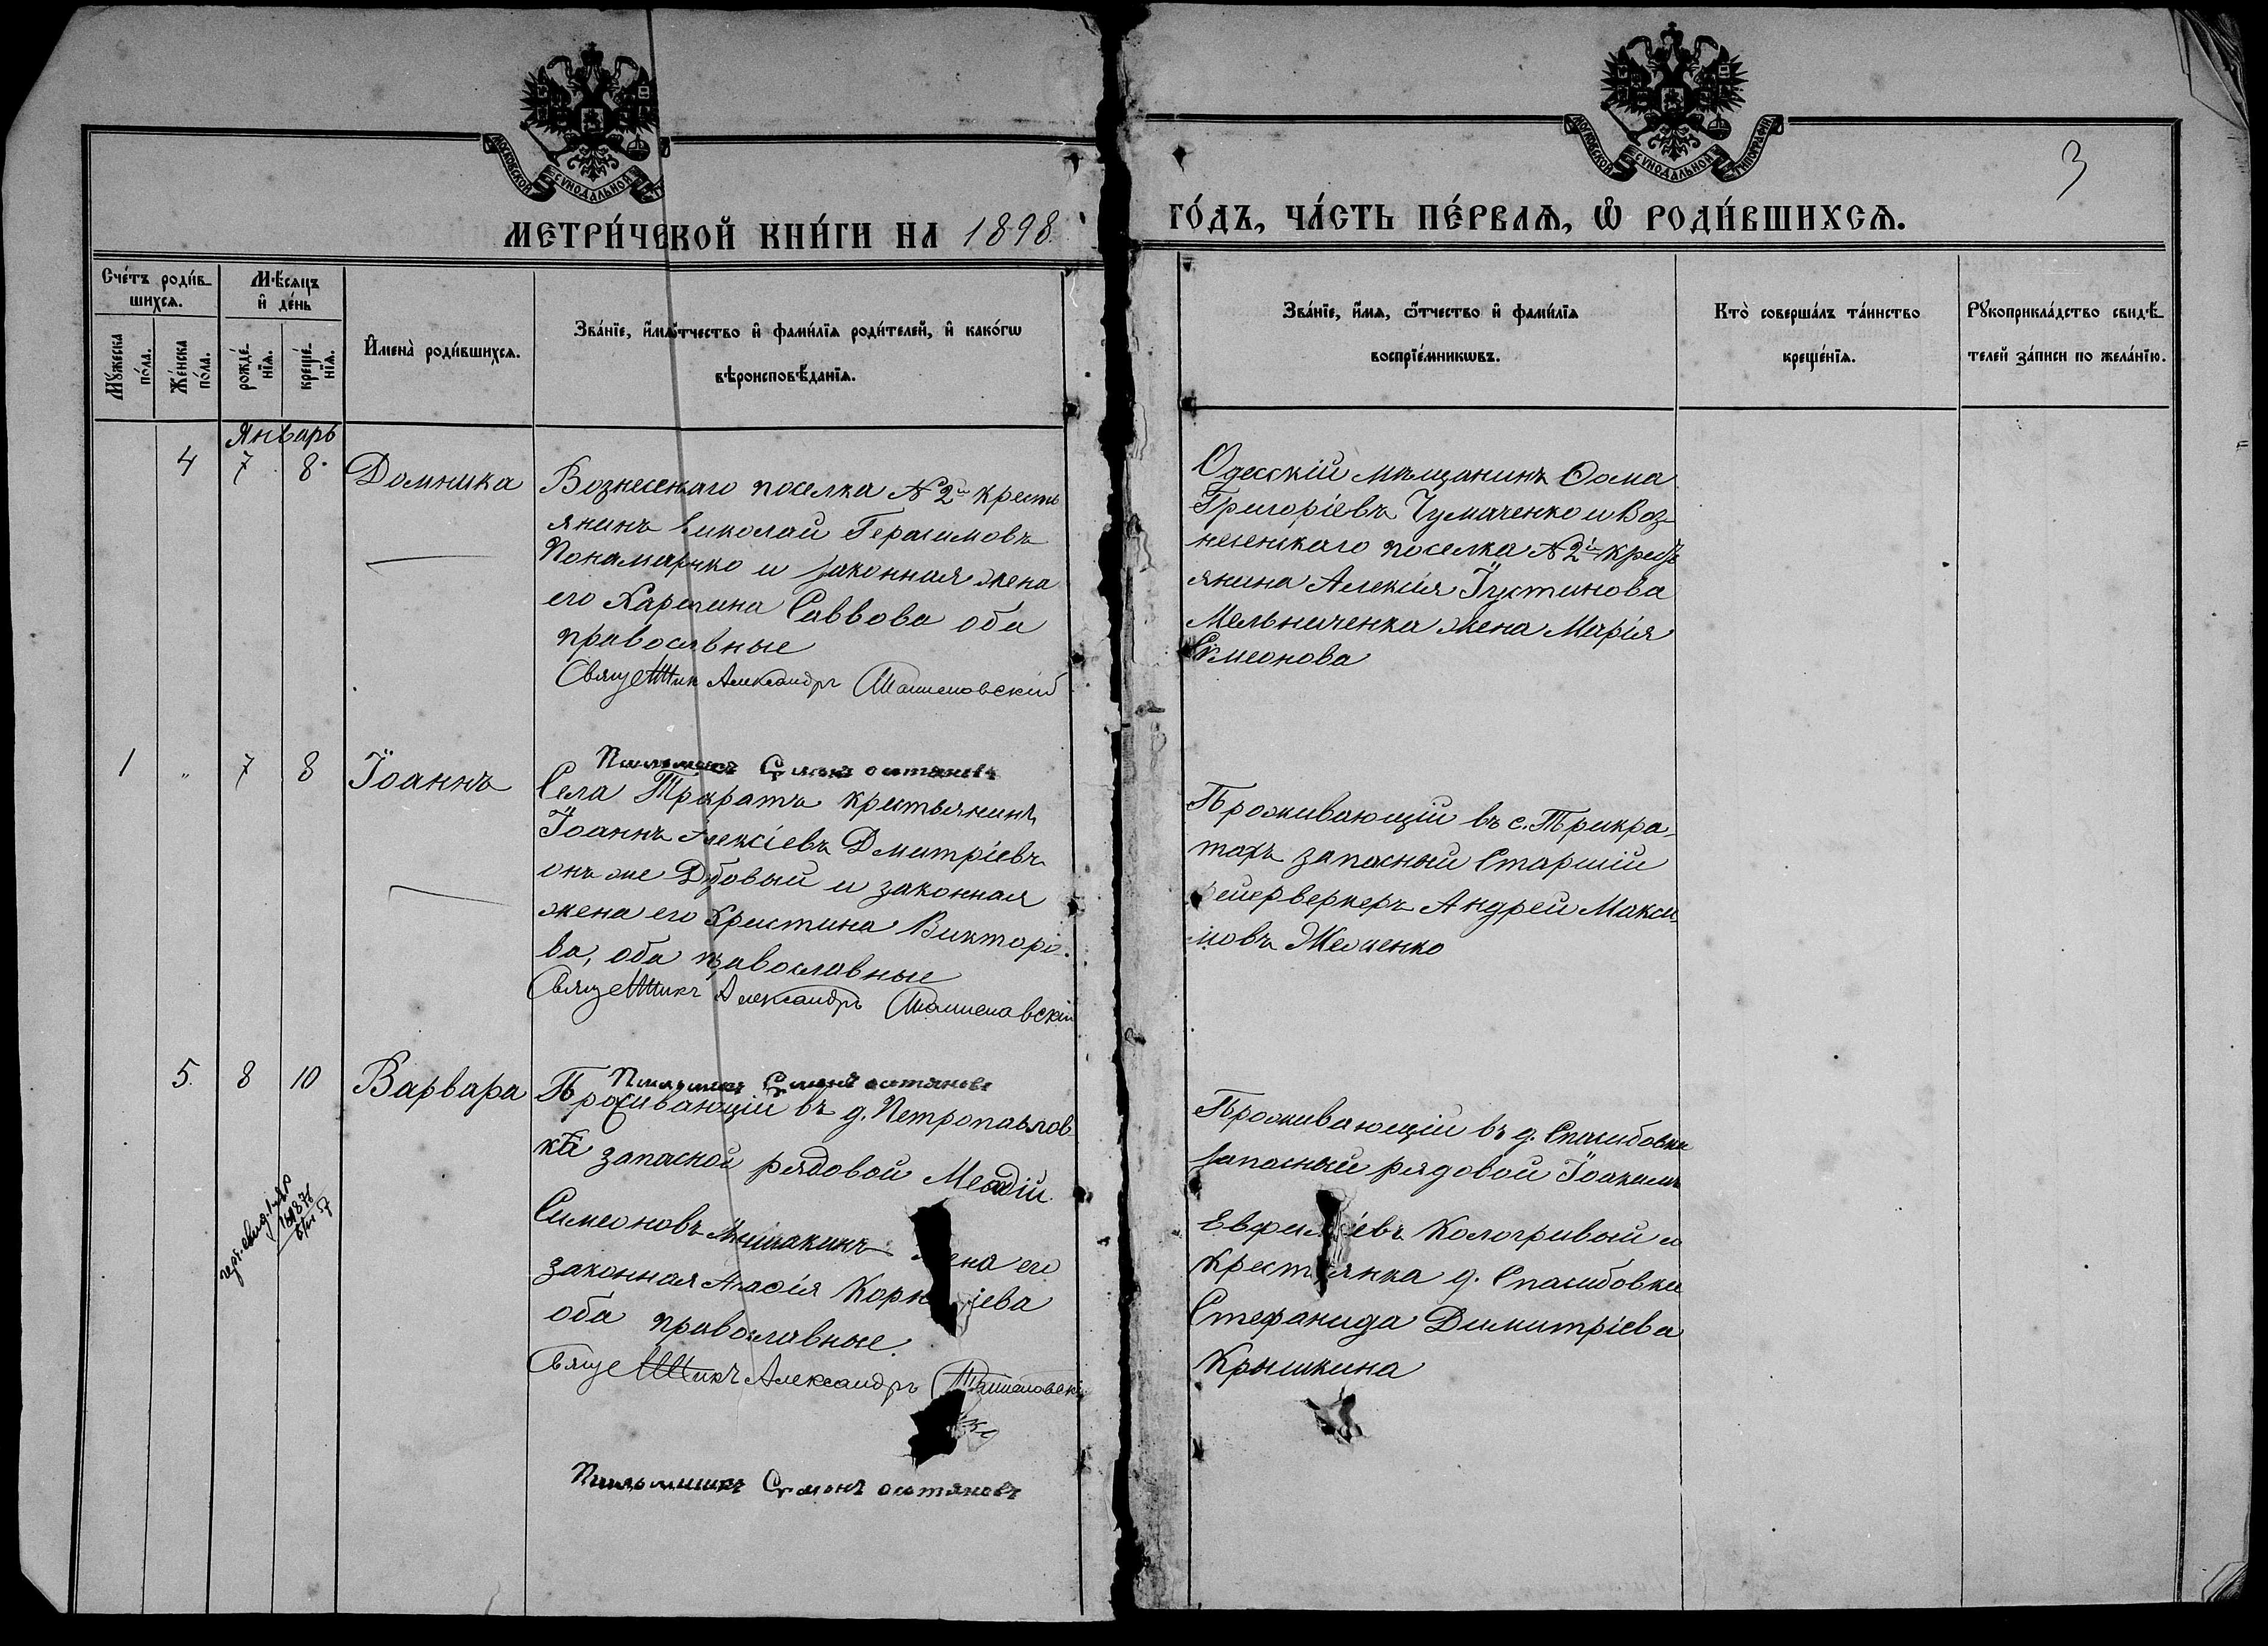 МОСКОВСКОЙ СѴНОДАЛЬНОЙ
МОСКОВСКОЙ СѴНОДАЛЬНОЙ ТИПОГРАФІИ
3
МЕТРИ́ЧЕСКОЙ КНИ́ГИ НА 1898.
ГО́ДЪ, ЧА́СТЬ ПЕ́РВАѦ, Ѡ҆ РОДИ́ВШИХСѦ.
Сче́тъ роди́в-
шихсѧ.
Мꙋ́жеска по́ла.
Же́нска по́ла.
Мѣ́сѧцъ
и҆ де́нь
рожде́-нїѧ.
креще́-нїѧ.
И҆мена̀ роди́вшихсѧ.
Зва́нїе, и҆́мѧ, ѻ҆́тчество и҆ фами́лїѧ роди́телей, и҆ како́гѡ
вѣроисповѣ́данїѧ.
Зва́нїе, и҆́мѧ, ѻ҆́тчество и҆ фами́лїѧ
воспрїе́мникѡвъ.
Кто̀ соверша́лъ та́инство
креще́нїѧ.
Рꙋкоприкла́дство свидѣ́-
телей за́писи по жела́нїю.
Январь
4 7 8. Домника
Вознесенскаго поселка N 2й кресть
янинъ Николай Герасимовъ
Понамаренко и законная жена
его Харитина Саввова оба
православные
Священникъ Александръ
Одесскій мѣщанинъ Ѳома
Григоріевъ Чумаченко и Воз-
несенскаго поселка N 2й крест
янина Алексія Іустинова
Мельниченка жена Марія
Симеонова
1 " 7 8 Іоаннъ
Псаломщикъ
Села Трикратъ крестьянинъ
Іоаннъ Алексіевъ Дмитріевъ
онъ же Дубовый и законная
жена его Христина Викторо-
ва, оба православные
Священникъ Александръ
Проживающій въ с. Трикра-
тахъ запасный Старшій
фейерверкеръ Андрей Макси
мовъ
5. 8 10 Варвара
Псаломщикъ
Проживающій въ д. Петропавлов
кѣ запасной рядовой
Симеоновъ жена его
законная Агафія Корн іева
оба православные.
Священникъ Александръ
Псаломщикъ
Проживающій въ д. Спасибовкѣ
запасный рядовой Іоакимъ
Евфиміевъ Кологривый и
Крестьянка д. Спасибовки
Стефанида Димитріева
Крышкина